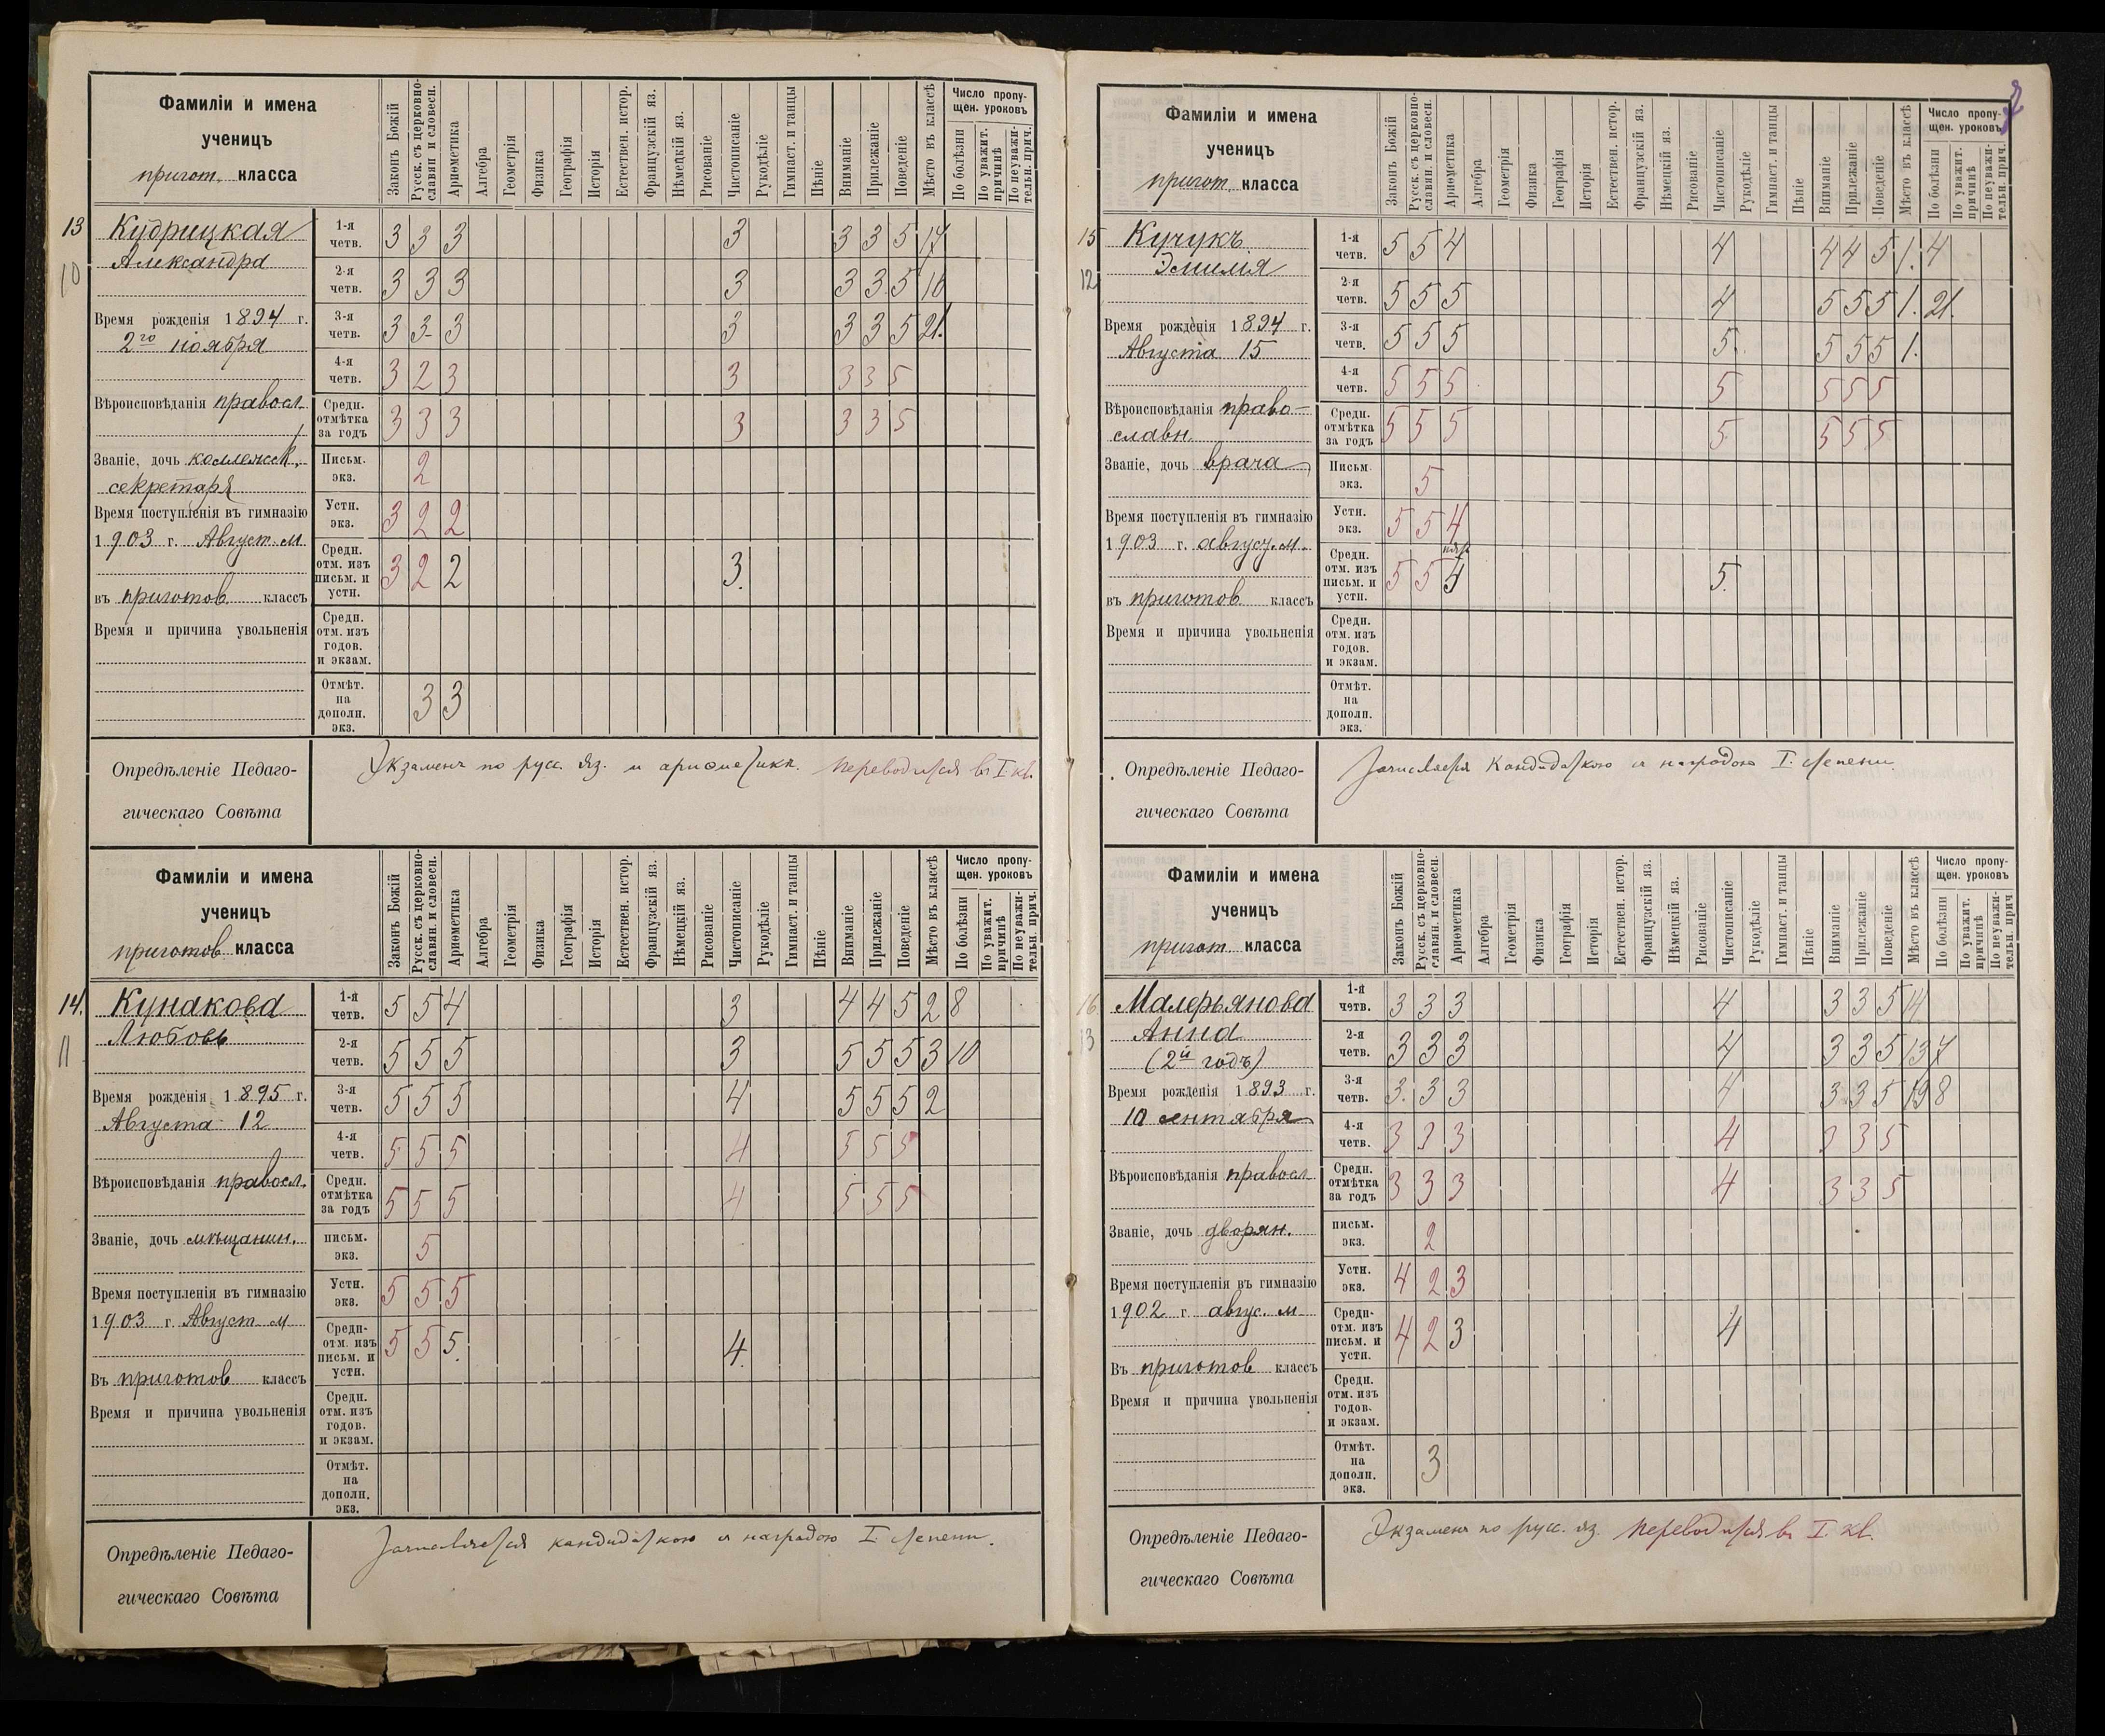 Фамиліи и имена
ученицъ
пригот. класса
Законъ Божій
Русск. съ церковно-
славян. и словесн.
Ариѳметика
Алгебра
Геометрія
Физика
Географія
Исторія
Естествен. истор.
Французскій яз.
Нѣмецкій яз.
Рисованіе
Чистописаніе
Рукодѣліе
Гимнаст. и танцы
Пѣніе
Вниманіе
Прилежаніе
Поведеніе
Мѣсто въ классѣ
Число пропу-
щен. уроковъ
По болѣзни
По уважит.
причинѣ
По неуважи-
тельн. прич.
13 Кудрицкая
Александра
10
Время рожденія 1894 г.
2го ноября
Вѣроисповѣданія правосл.
Званіе, дочь коллежск.
секретаря
Время поступленія въ гимназію
1903 г. Август. м.
въ приготов. классъ
Время и причина увольненія
1-я четв. 3 3 3 3 3 3 5 17
2-я четв. 3 3 3 3 3 3 5 16
3-я четв. 3 3 3 3 3 3 5 21.
4-я четв. 3 2 3 3 3 3 5
Средн. отмѣтка за годъ 3 3 3 3 3 3 5
Письм. экз. 2
Устн. экз. 3 2 2
Средн. отм. изъ письм. и устн. 3 2 2 3.
Средн. отм. изъ годов. и экзам.
Отмѣт. на дополн. экз. 3 3
Опредѣленіе Педаго-
гическаго Совѣта
Экзаменъ по русс. яз. и ариѳметикѣ. Переводится въ I кл.
Фамиліи и имена
ученицъ
приготов. класса
Законъ Божій
Русск. съ церковно-
славян. и словесн.
Ариѳметика
Алгебра
Геометрія
Физика
Географія
Исторія
Естествен. истор.
Французскій яз.
Нѣмецкій яз.
Рисованіе
Чистописаніе
Рукодѣліе
Гимнаст. и танцы
Пѣніе
Вниманіе
Прилежаніе
Поведеніе
Мѣсто въ классѣ
Число пропу-
щен. уроковъ
По болѣзни
По уважит.
причинѣ
По неуважи-
тельн. прич.
14. Кунакова
Любовь
11
Время рожденія 1895 г.
Августа 12
Вѣроисповѣданія правосл.
Званіе, дочь мѣщанин.
Время поступленія въ гимназію
1903 г. Август. м
Въ приготов классъ
Время и причина увольненія
1-я четв. 5 5 4 3 4 4 5 2 8
2-я четв. 5 5 5 3 5 5 5 3 10
3-я четв. 5 5 5 4 5 5 5 2
4-я четв. 5 5 5 4 5 5 5
Средн. отмѣтка за годъ 5 5 5 4 5 5 5
письм. экз. 5
Устн. экз. 5 5 5
Средн- отм. изъ письм. и устн. 5 5 5. 4.
Средн. отм. изъ годов. и экзам.
Отмѣт. на дополн. экз.
Опредѣленіе Педаго-
гическаго Совѣта
Зачисляется кандидаткою съ наградою I. степени.
Фамиліи и имена
ученицъ
пригот. класса
Законъ Божій
Русск. съ церковно-
славян. и словесн.
Ариѳметика
Алгебра
Геометрія
Физика
Географія
Исторія
Естествен. истор.
Французскій яз.
Нѣмецкій яз.
Рисованіе
Чистописаніе
Рукодѣліе
Гимнаст. и танцы
Пѣніе
Вниманіе
Прилежаніе
Поведеніе
Мѣсто въ классѣ
Число пропу-
щен. уроковъ
По болѣзни
По уважит.
причинѣ
По неуважи-
тельн. прич.
15 Кучукъ
Эмилія
12
Время рожденія 1894 г.
Августа 15
Вѣроисповѣданія право-
славн.
Званіе, дочь врача
Время поступленія въ гимназію
1903 г. август. м.
въ приготов. классъ
Время и причина увольненія
1-я четв. 5 5 4 4 4 4 5 1. 4
2-я четв. 5 5 5 4 5 5 5 1. 21.
3-я четв. 5 5 5 5. 5 5 5 1.
4-я четв. 5 5 5 5 5 5 5
Средн. отмѣтка за годъ 5 5 5 5 5 5 5
Письм. экз. 5
Устн. экз. 5 5 4
Средн. отм. изъ письм. и устн. 5 5 5.
Средн. отм. изъ годов. и экзам.
Отмѣт. на дополн. экз.
Опредѣленіе Педаго-
гическаго Совѣта
Зачисляется кандидаткою съ наградою I. степени.
Фамиліи и имена
ученицъ
пригот. класса
Законъ Божій
Русск. съ церковно-
славян. и словесн.
Ариѳметика
Алгебра
Геометрія
Физика
Географія
Исторія
Естествен. истор.
Французскій яз.
Нѣмецкій яз.
Рисованіе
Чистописаніе
Рукодѣліе
Гимнаст. и танцы
Пѣніе
Вниманіе
Прилежаніе
Поведеніе
Мѣсто въ классѣ
Число пропу-
щен. уроковъ
По болѣзни
По уважит.
причинѣ
По неуважи-
тельн. прич
16. Малерьянова
Анна
13
(2й годъ)
Время рожденія 1893 г.
10 сентября
Вѣроисповѣданія правосл.
Званіе, дочь дворян.
Время поступленія въ гимназію
1902 г. авгус. м
Въ приготов классъ
Время и причина увольненія
1-я четв. 3 3 3 4 3 3 5
2-я четв. 3 3 3 4 3 3 5 13 7
3-я четв. 3. 3 3 4 3 3 5 19 8
4-я четв. 3 3 3 4 3 3 5
Средн. отмѣтка за годъ 3 3 3 4 3 3 5
письм. экз. 2
Устн. экз. 4 2 3
Средн- отм. изъ письм. и устн. 4 2 3 4
Средн. отм. изъ годов- и экзам.
Отмѣт. на дополн. экз. 3
Опредѣленіе Педаго-
гическаго Совѣта
Экзаменъ по русс. яз. Переводится въ I. кл.